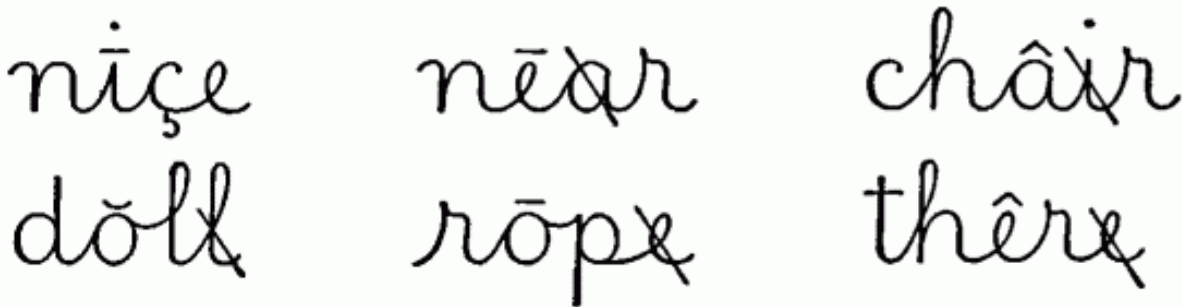 nīçe nēar châir
dŏll rōpe thêre